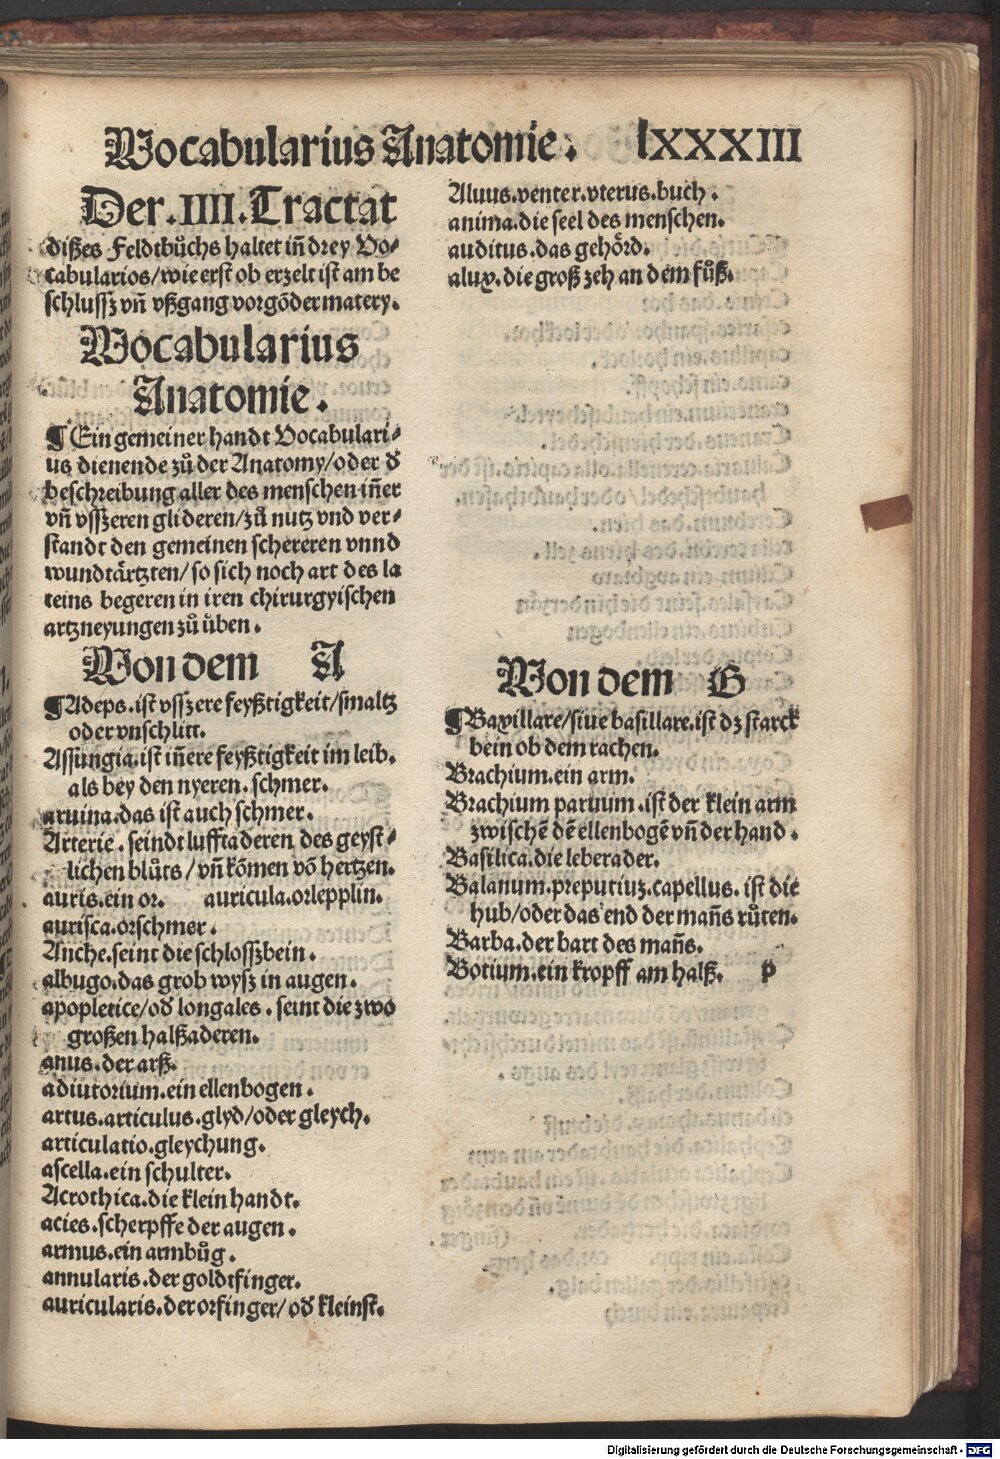 Vocabularius Anatomie. lXXXIII
Der.IIII.Tractat
dißes Feldtbůchs haltet iñ drey Vo⸗
cabularios/wie erst ob erzelt ist am be
schlussz vñ vßgang vorgõder matery.
Vocabularius
Anatomie.
¶Ein gemeiner handt Vocabulari⸗
us dienende zů der Anatomy/oder d
beschreibung aller des menschen iñer
vñ vsszeren glideren/zů nutz vnd ver⸗
standt den gemeinen schereren vnnd
wundtärtzten/so sich noch art des la
teins begeren in iren chirurgyischen
artzneyungen zů üben.
Von dem A
¶Adeps.ist vsszere feyßtigkeit/smaltz
oder vnschlitt.
Assungia.ist iñere feyßtigkeit im leib.
als bey den nyeren. schmer.
aruina.das ist auch schmer.
Arterie. seindt lufftaderen des geyst⸗
lichen blůts/vñ kõmen võ hertzen.
auris.ein or. auricula.orlepplin.
aurisca.orschmer.
Anche.seint die schlosszbein.
albugo.das grob wysz in augen.
apopletice/od longales. seint die zwo
großen halßaderen.
anus.der arß.
adiutorium.ein ellenbogen.
artus.articulus.glyd/oder gleych.
articulatio.gleychung.
ascella.ein schulter.
Acrothica.die klein handt.
acies.scherpffe der augen.
armus.ein armbůg.
annularis.der goldtfinger.
auricularis.der orfinger/od kleinst.
Aluus.venter.vterus.buch.
anima.die seel des menschen.
auditus.das gehörd.
alux.die groß zeh an dem fůß.
Von dem B
¶Baxillare/siue basillare.ist dz starck
bein ob dem rachen.
Brachium.ein arm.
Brachium paruum.ist der klein arm
zwischē dē ellenbogē vñ der hand.
Basilica.die leberader.
Balanum.preputiuz.capellus. ist die
hub/oder das end der mañs růten.
Barba.der bart des mañs.
Botium.ein kropff am halß. P
Digitalisierung gefördert durch die Deutsche Forschungsgemeinschaft - DFG